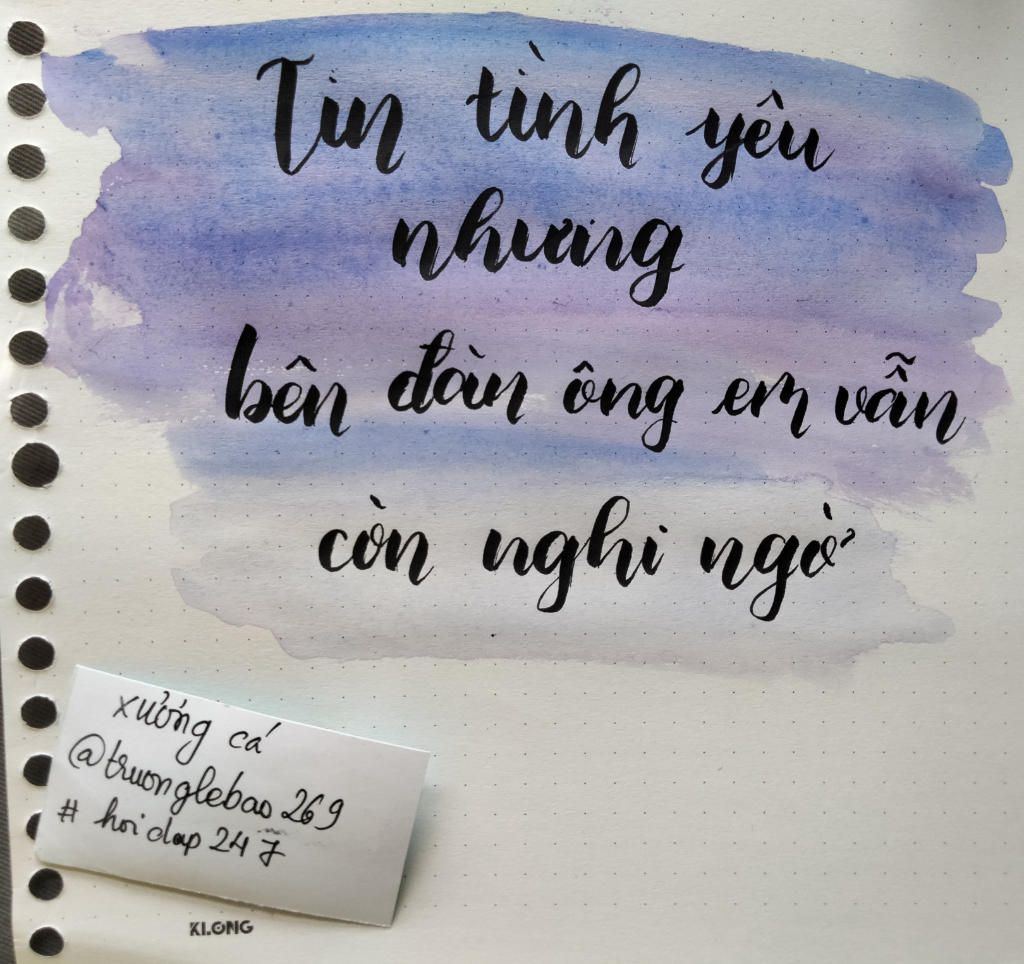 Tin tình yêu
nhưng
bên đàn ông em vẫn
còn nghi ngờ
xưởng cá
@truonglebao269
# hoidap 247
KLONG